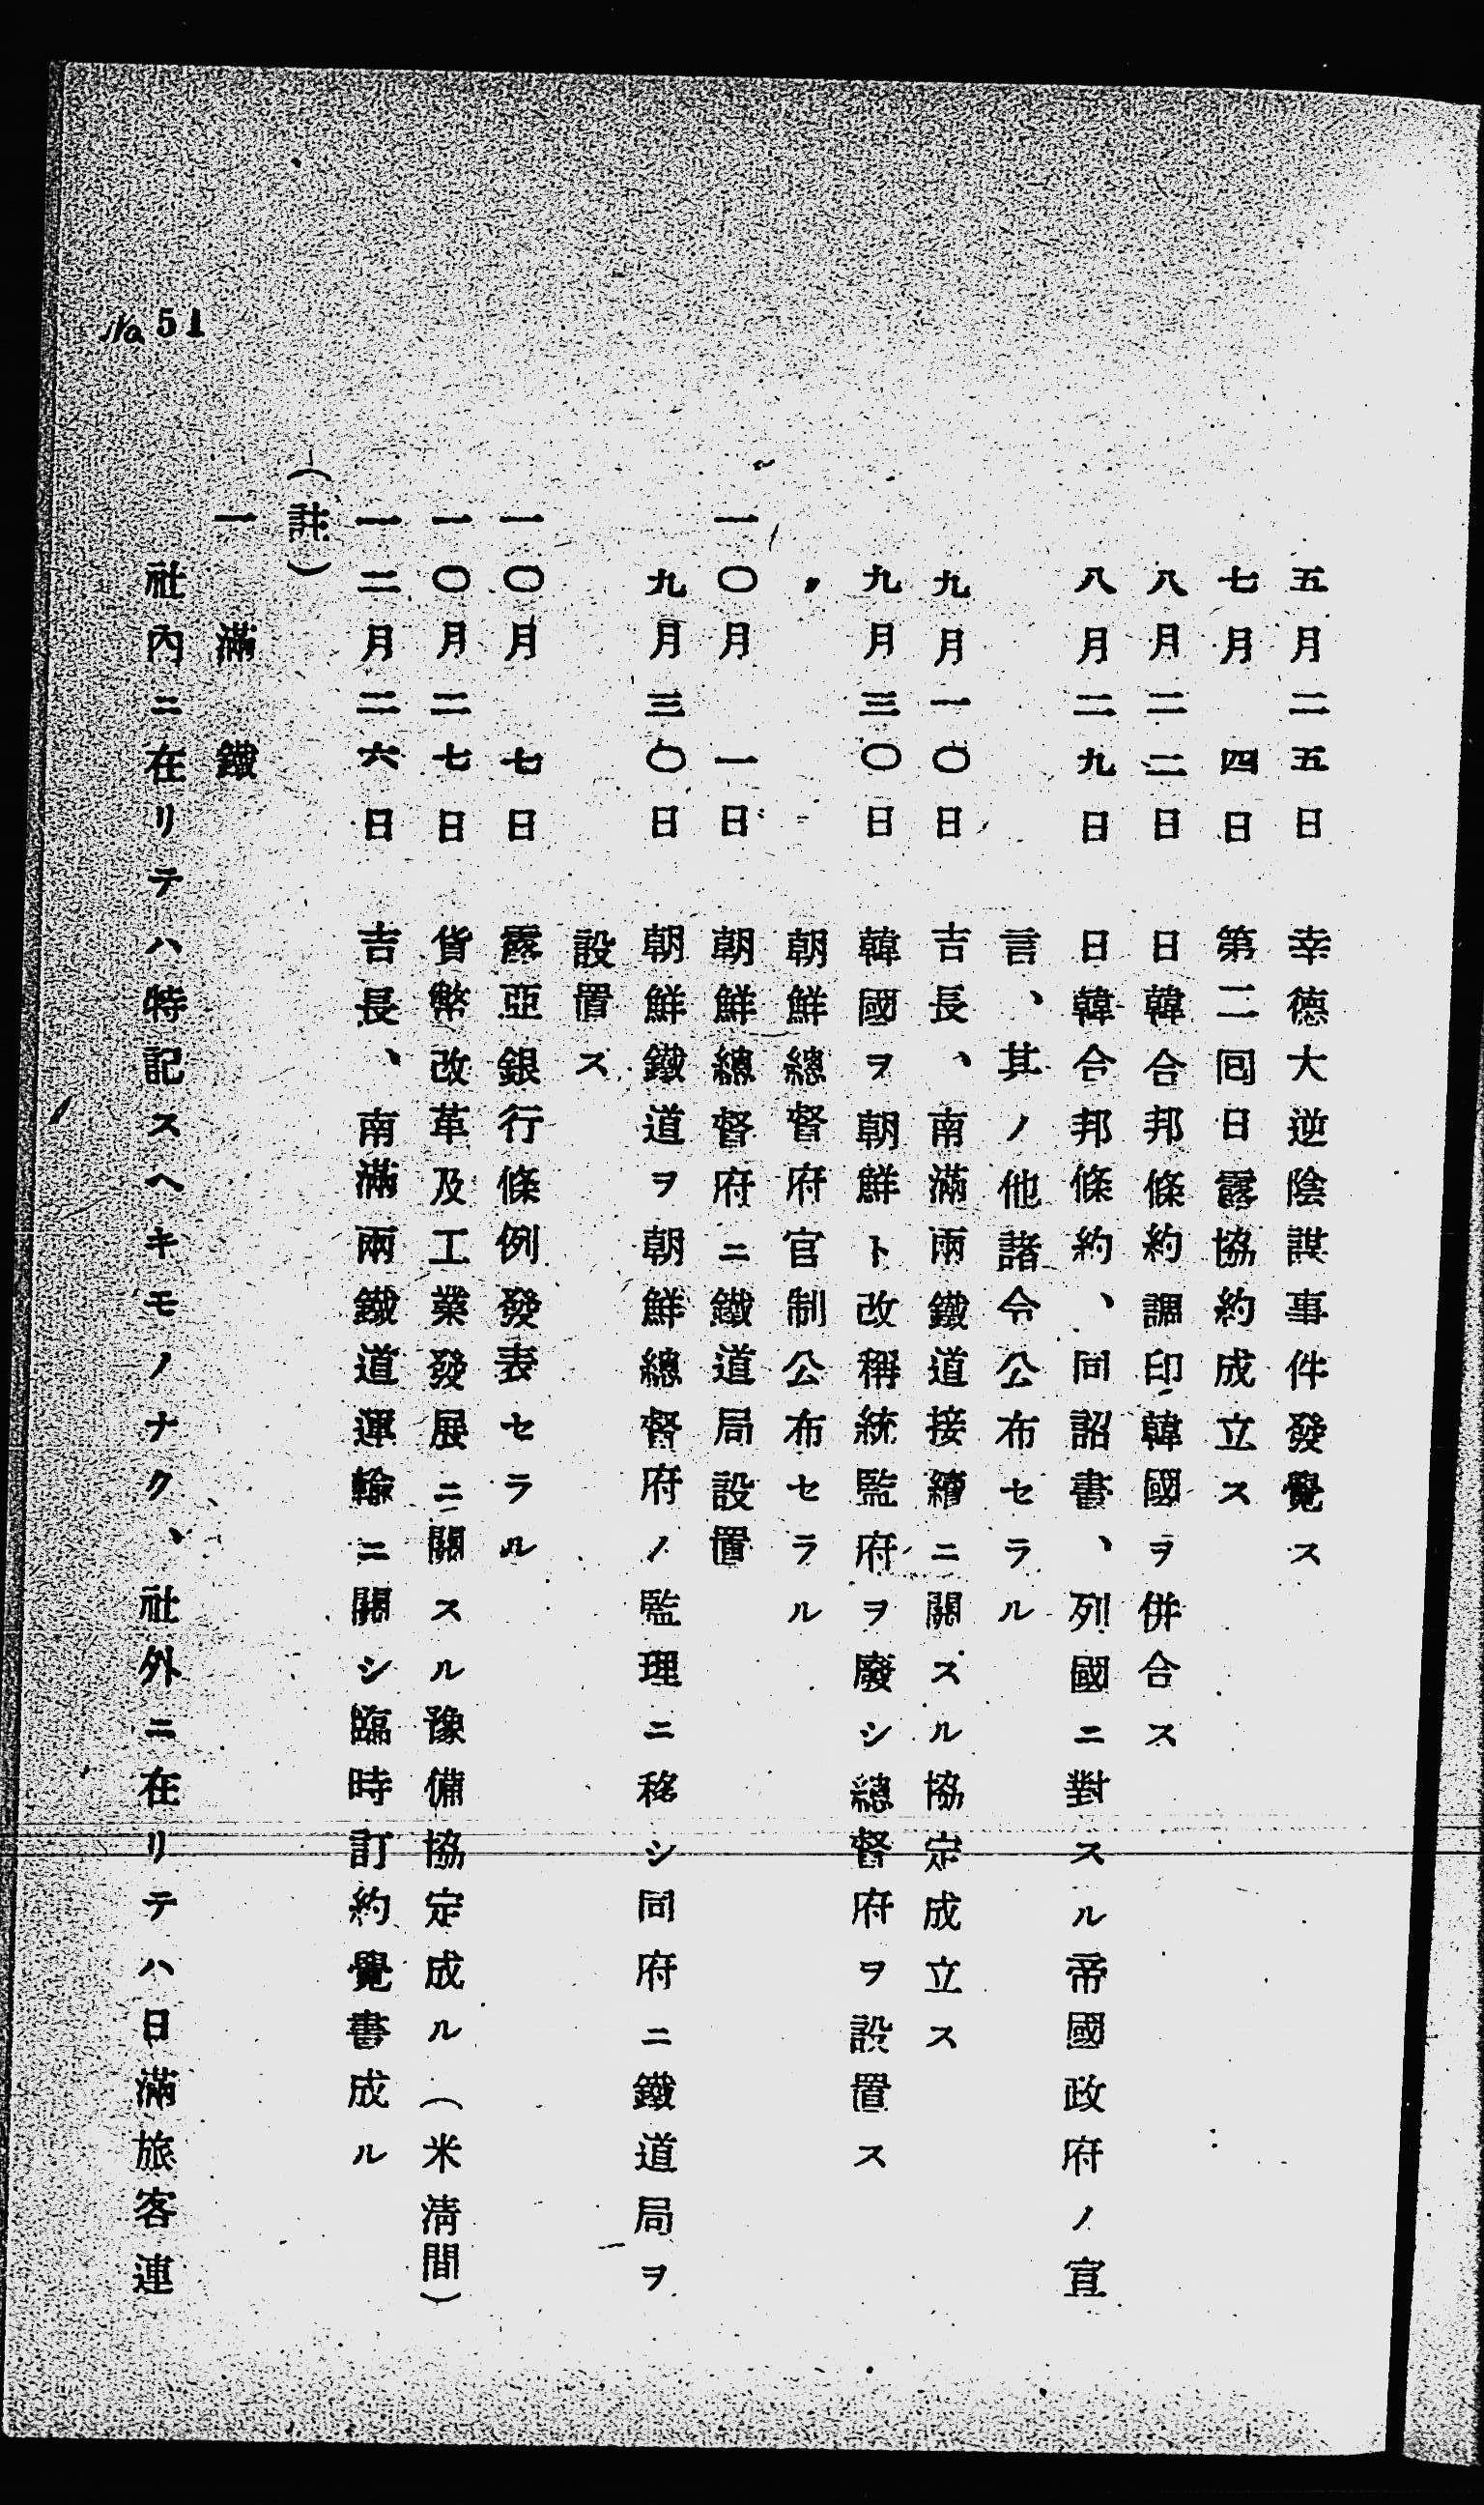 五月二五日　幸德大逆陰謀事件發覺ス
七月　四日　第二囘日露協約成立ス
八月二二日　日韓合邦條約調印韓國ヲ併合ス
八月二九日　日韓合邦條約、同詔書、列國ニ對スル帝國政府ノ宣
言、其ノ他諸令公布セラル
九月一〇日　吉長、南滿兩鐵道接續ニ關スル協定成立ス
九月三〇日　韓國ヲ朝鮮ト改稱統監府ヲ廢シ總督府ヲ設置ス
〃　朝鮮總督府官制公布セラル
一〇月　一日　朝鮮總督府ニ鐵道局設置
九月三〇日　朝鮮鐵道ヲ朝鮮總督府ノ監理ニ移シ同府ニ鐵道局ヲ
設置ス
一〇月　七日　露亞銀行條例發表セラル
一〇月二七日　貨幣改革及工業發展ニ關スル豫備協定成ル（米淸間）
一二月二六日　吉長、南滿兩鐵道運輸ニ關シ臨時訂約覺書成ル
（註）
一　滿　鐵
社內ニ在リテハ特記スヘキモノナク、社外ニ在リテハ日滿旅客連
No 51